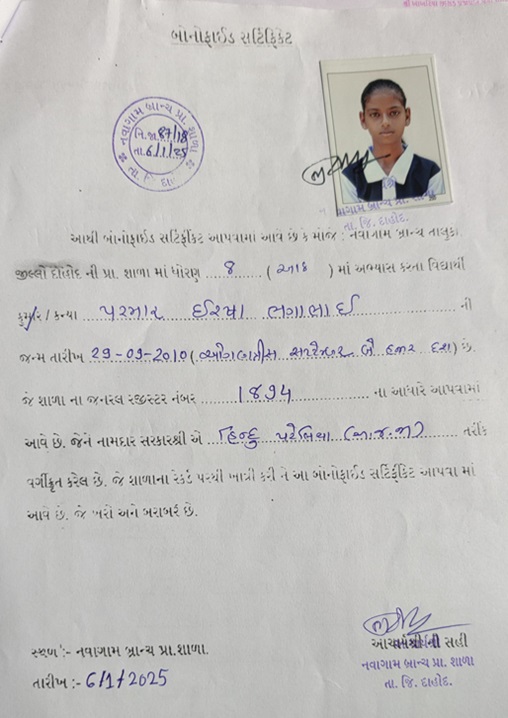 બોનોફાઈડ સર્ટિફિકેટ
નવાગામ બ્રાન્ચ પ્રા. શાળા
નિ.જા. 87/18
તા. 6/1/25
નવાગામ બ્રાન્ચ પ્રા. શાળા
તા. જિ. દાહોદ.
આથી બોનોફાઈડ સર્ટિર્ફીકેટ આપવામાં આવે છે કે મોજે : નવાગામ બ્રાન્ચ તાલુકા.
જીલ્લો દાહોદ ની પ્રા. શાળા માં ધોરણ 8 ( આઠ ) માં અભ્યાસ કરતા વિદ્યાર્થી
કુમાર / કન્યા પરમાર ઈરયા ભગાભાઈ ની
જન્મ તારીખ 29-09-2010 (ઓગણત્રીસ સપ્ટેમ્બર બે હજાર દશ) છે.
જે શાળા ના જનરલ રજીસ્ટર નંબર 1894 ના આધારે આપવામાં
આવે છે. જેને નામદાર સરકારશ્રી એ હિન્દુ પટેલિયા (અ.જ.જા) તરીકે
વર્ગીકૃત કરેલ છે. જે શાળાના રેકર્ડ પરથી ખાત્રી કરી ને આ બોનોફાઈડ સર્ટિર્ફીકેટ આપવા માં
આવે છે. જે ખરો અને બરાબર છે.
સ્થળ :- નવાગામ બ્રાન્ચ પ્રા.શાળા.
તારીખ :- 6/1/2025
આચાર્યશ્રી ની સહી
નવાગામ બ્રાન્ચ પ્રા. શાળા
તા. જિ. દાહોદ.